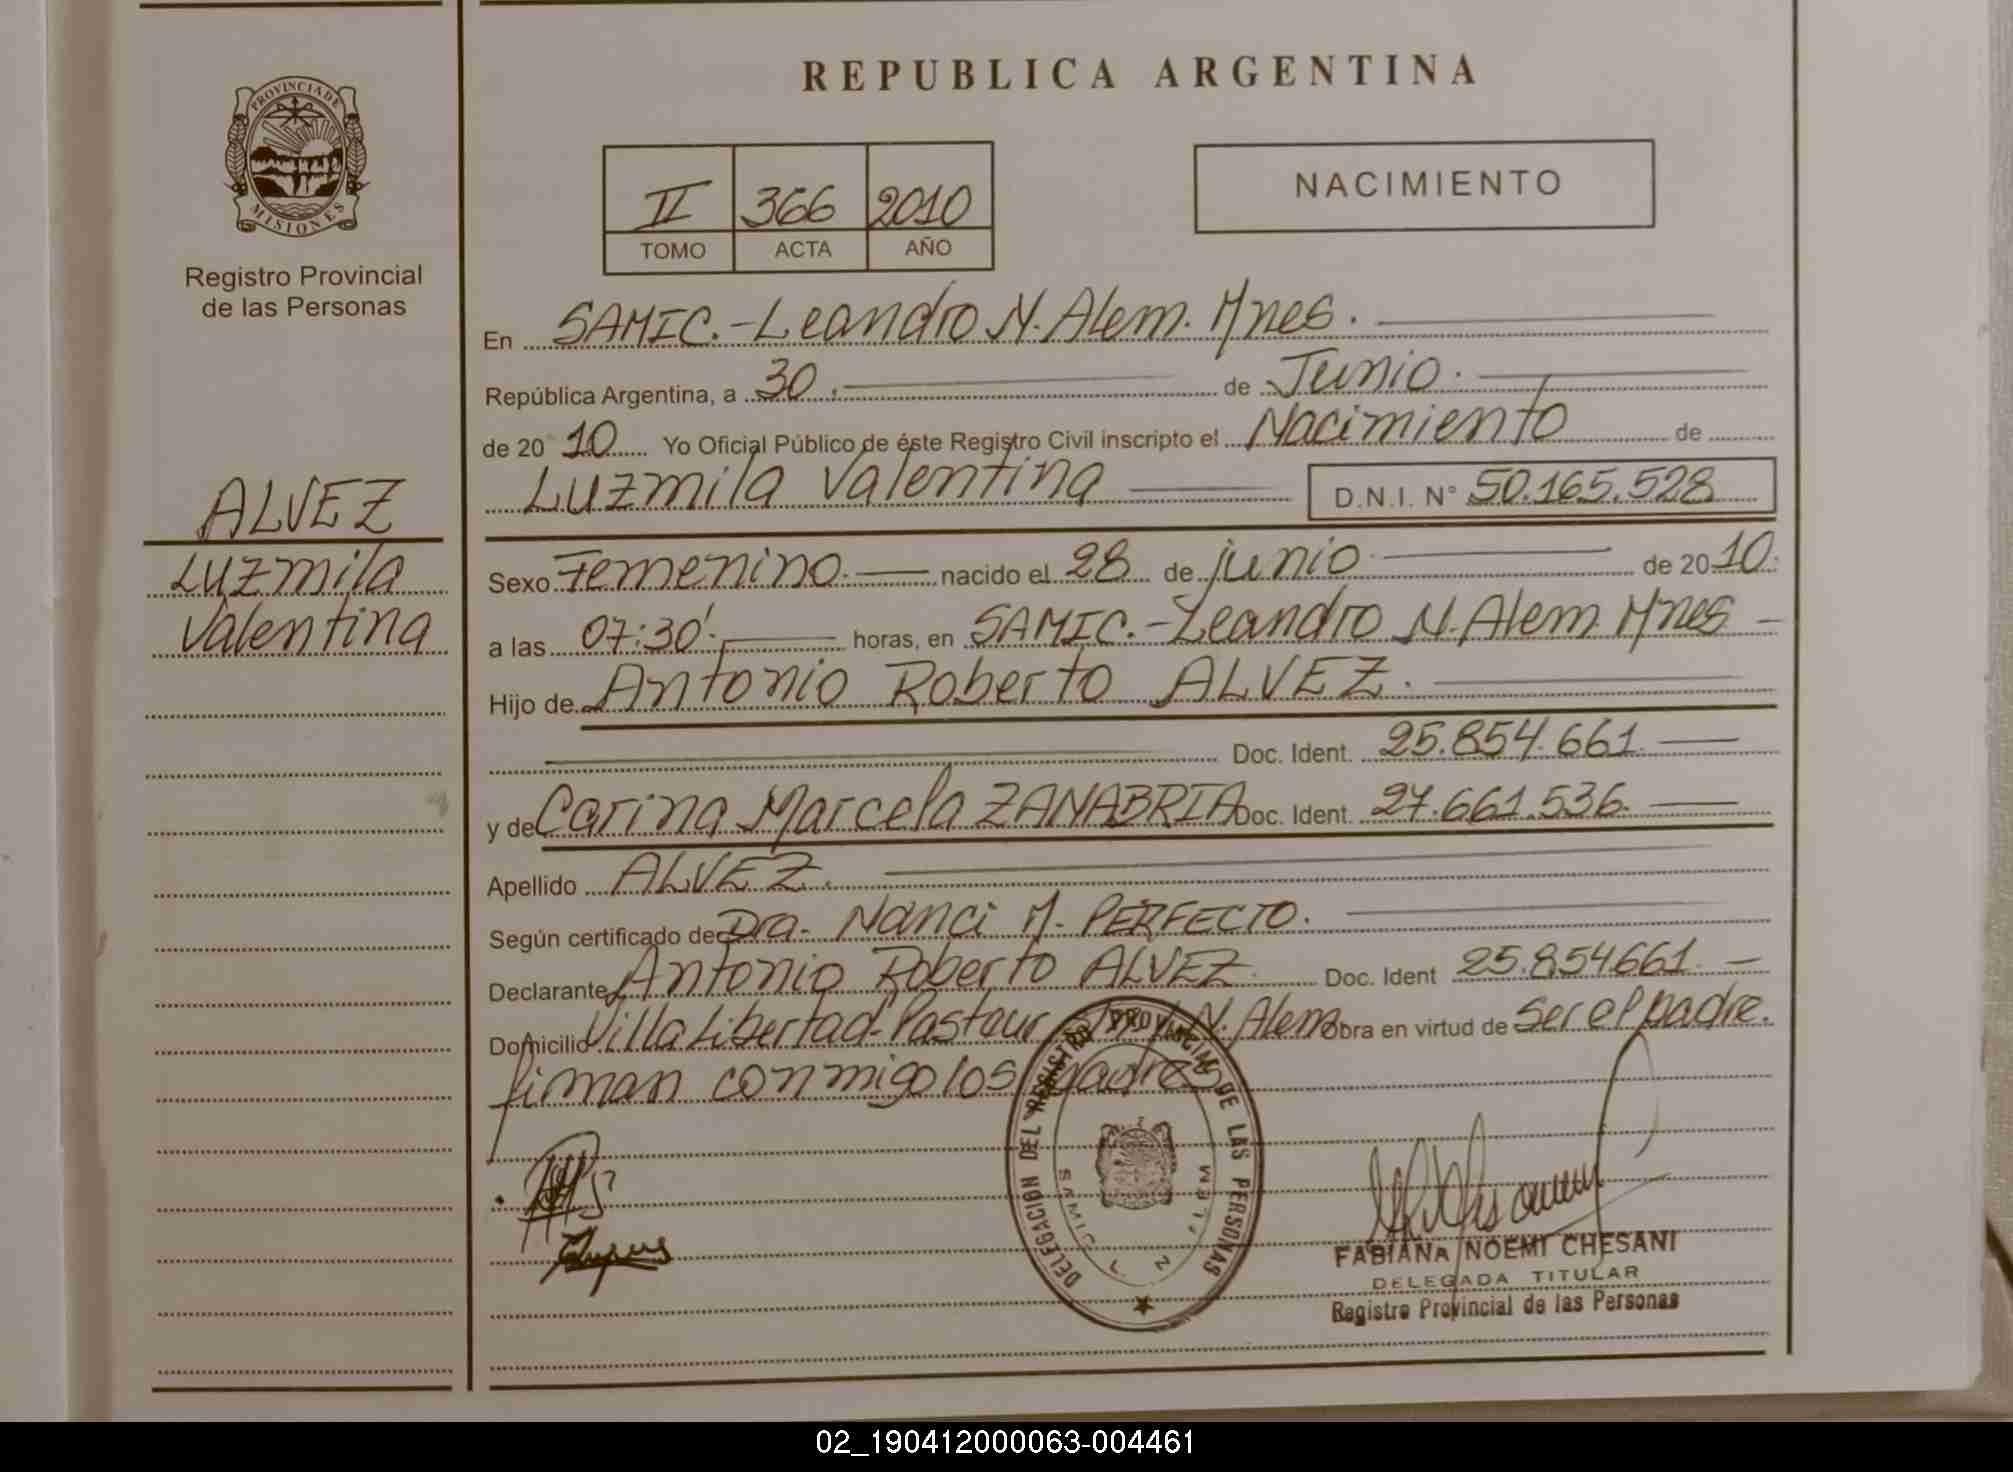 REPUBLICA ARGENTINA
PROVINCIA DE
MISIONES
Registro Provincial
de las Personas
II 366 2010
TOMO ACTA AÑO
NACIMIENTO
En SAMIC.-Leandro N. Alem. Mnes.
República Argentina, a 30. de Junio.
de 20 10 Yo Oficial Público de éste Registro Civil inscripto el Nacimiento de
Luzmila Valentina D.N.I. N° 50.165.528
ALVEZ
Luzmila
Valentina
Sexo Femenino. nacido el 28 de junio de 20 10.
a las 07:30'. horas, en SAMIC.-Leandro N. Alem. Mnes
Hijo de Antonio Roberto ALVEZ.
Doc. Ident. 25.854.661.
y de Carina Marcela ZANABRIA Doc. Ident. 27.661.536.
Apellido ALVEZ.
Según certificado de Dra. Nanci M. PERFECTO.
Declarante Antonio Roberto ALVEZ. Doc. Ident 25.854661.
Domicilio Villa Libertad-Pasteur N. Alem. Obra en virtud de ser el padre.
firman conmigo los padres
DELEGACION DEL REGISTRO PROVINCIAL DE LAS PERSONAS
SAMIC L. N. ALEM
FABIANA NOEMI CHESANI
DELEGADA TITULAR
Registro Provincial de las Personas
02_190412000063-004461